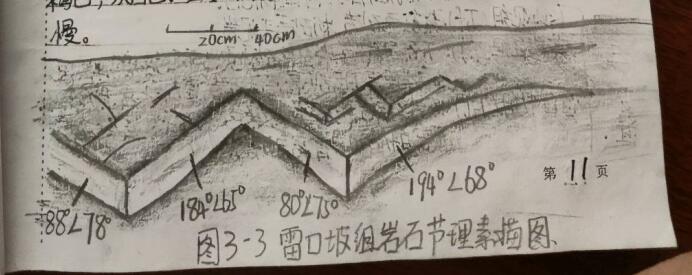 慢。
20cm 40cm
88°∠78° 184°∠65° 80°∠75° 194°∠68°
第 11 页
图3-3 雷口坡组岩石节理素描图.